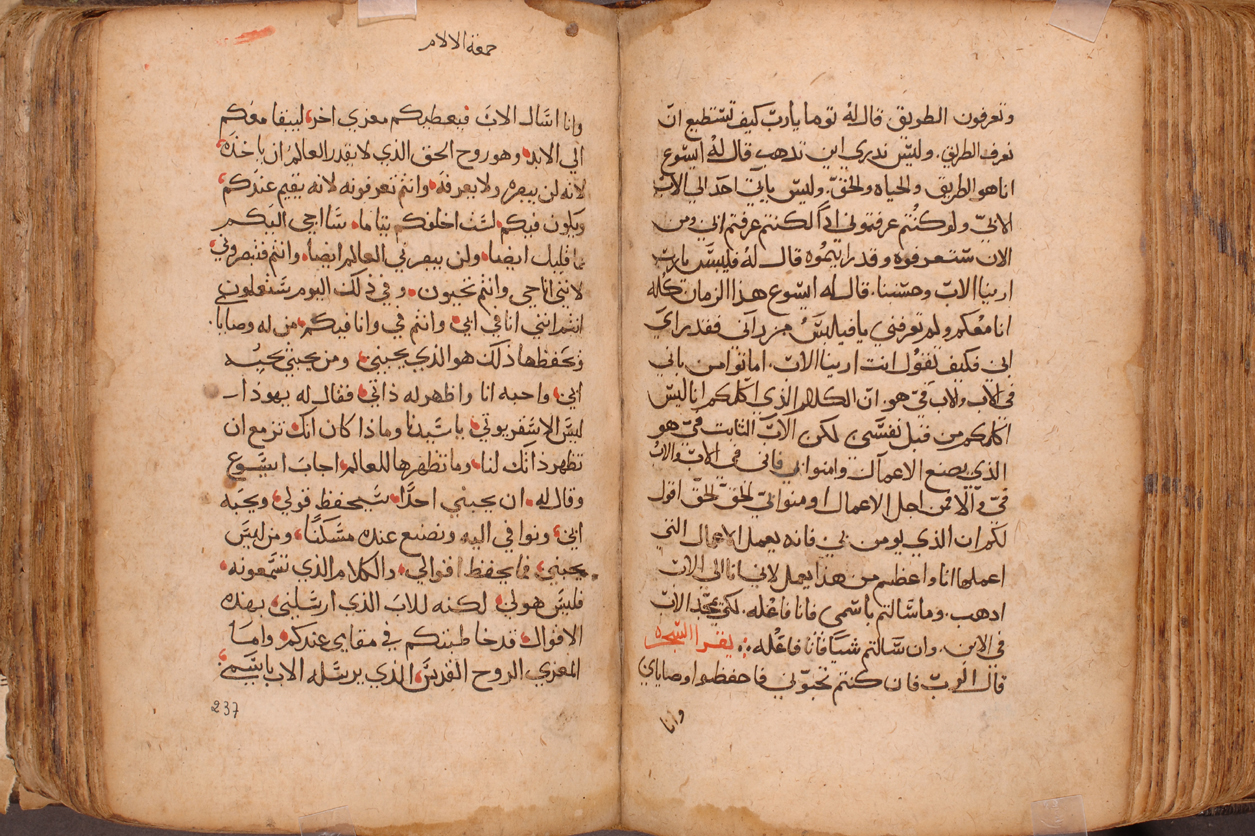 وتعرفون الطريق قال له توما يارب كيف تستطيع ان
نعرف الطريق. وليس ندري اين تدهب قال له ايسوع
انا هو الطريق والحياه والحق. وليس ياتي احد الي الاب
الا بي ولو كنتم عرفتموني اذا لكنتم عرفتم ابي ومن
الان ستعرفوه وقد رايتموه قال له فليبس يارب
ارينا الاب وحسبنا. قال له ايسوع هذا الزمان كله
انا معكم ولم تعرفني يا فيلبس من راني فقد راي
ابي فكيف تقول انت ارينا الاب. اما تومن باني
في الاب والاب في هو. ان الكلام الذي اكلمكم انا ليس
اكلمكم من قبل نفسي لكن الاب الثابت في هو
الذي يصنع الاعمال وامنوا بي فاني في الاب والاب
في والا فمن اجل الاعمال اومنوا بي الحق الحق اقول
لكم ان الذي يومن بي فانه يعمل الاعمال التي
اعملها انا واعظم من هذا يعمل لاني انا الي الاب
ادهب. وما سالتم باسمي فانا فاعله. لكي يمجد الاب
في الابن. وان سالتم شيا فانا فاعله ∴ يقرا السحره
قال الرب فان كنتم تحبوني فاحفظوا وصاياي
وانا
جمعة الالام
وانا اسال الاب فيعطيكم معزي اخر ليبقا معكم
الي الابد وهو روح الحق الذي لا يقدر العالم ان ياخذه
لانه لن يبصره ولا يعرفه وانتم تعرفونه لانه يقيم عندكم
ويكون فيكم لست اخلفكم يتاما. سااجي اليكم
عما قليل ايضا ولن يبصرني العالم ايضا وانتم فتبصروني
لانني انا حي وانتم تحيون. وفي ذلك اليوم ستعلمون
انتم انني انا في ابي. وانتم في وانا فيكم من له وصايا.
ويحفظها ذلك هو الذي يحبني. ومن يحبني يحبه
ابي واحبه انا واظهر له ذاتي فقال له يهودا
ليس الاسخريوتي ياسيدنا وماذا كان انك تزمع ان
تظهر ذاتك لنا. وما تظهرها للعالم اجاب ايسوع
وقال له. ان يحبني احدا سيحفظ قولي ويحبه
ابي ونوافي اليه ونصنع عنده مسكنا ومن ليس
يحبني فما يحفظ اقوالي. والكلام الذي تسمعونه
فليس هو لي لكنه للاب الذي ارسلني بهذه
الاقوال قد خاطبتكم في مقامي عندكم واما
المعزي الروح القدس الذي يرسله الاب باسمي
237